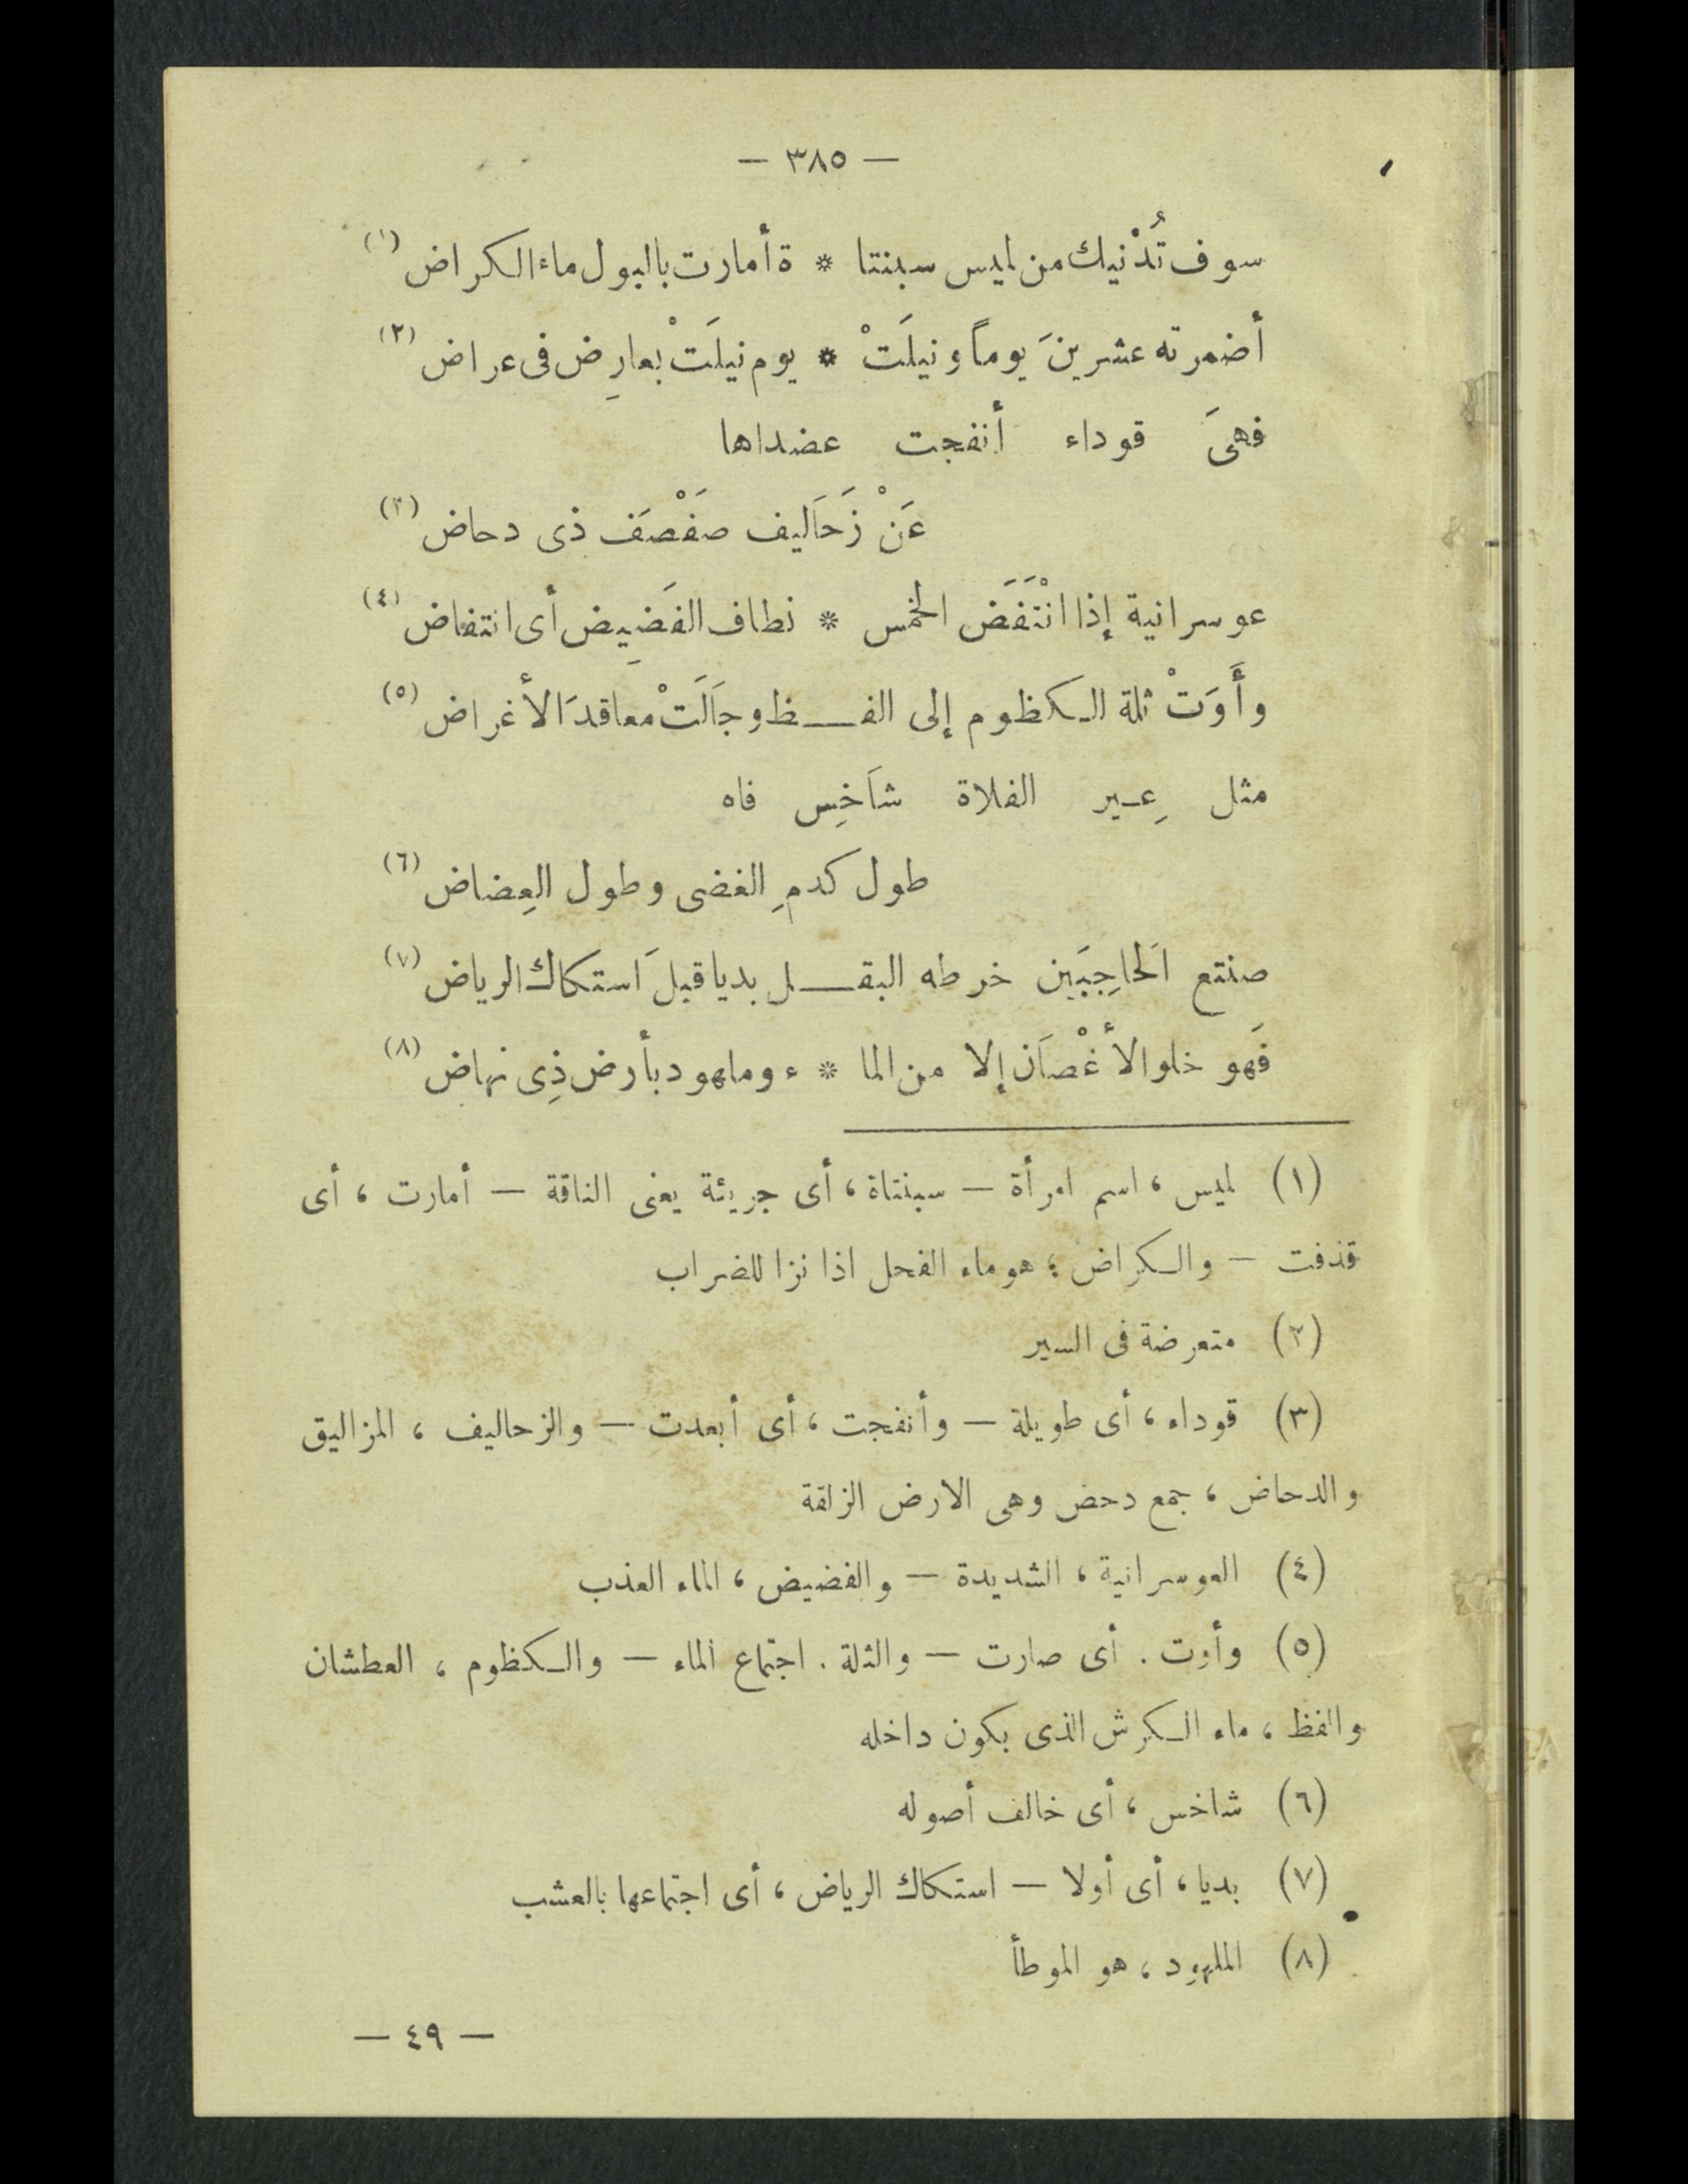 — ٣٨٥ —
سوف تُدْنيك من لميس سبنتا * ة أمارت بالبول ماء الكراض (١)
أضمرته عشرينَ يوماً ونيلَتْ * يوم نيلَتْ بعارِض فى عراض (٢)
فهىَ قوداء أنفجت عضداها
عَنْ زَحَاليف صفْصَف ذى دحاض (٣)
عوسرانية إذا انْتَفَض الخمس * نطاف الفَضيِض أى انتفاض (٤)
وأَوَتْ ثلة الكظوم إلى الفـــظ وجاَلَتْ معاقدَ الأغراض (٥)
مثل عِير الفلاة شاَخِس فاه
طول كدمِ الغضى وطول العِضاض (٦)
صنتع اَلحاجِبَين خرطه البقـــل بديا قبلَ استكاك الرياض (٧)
فَهو خلو الأغْصاَن إلا من الما * ء وملهود بأرض ذِى نهاض (٨)
(١) لميس ، اسم امرأة — سبنتاة ، أى جريئة يعنى الناقة — أمارت ، أى
قذفت — والكراض ؛ هو ماء الفحل اذا نزا للضراب
(٢) متعرضة فى السير
(٣) قوداء ، أى طويلة — وأنفجت ، أى أبعدت — والزحاليف ، المزاليق
والدحاض ، جمع دحض وهى الارض الزلقة
(٤) العوسرانية ، الشديدة — والفضيض ، الماء العذب
(٥) وأوت . أى صارت — والثلة . اجتماع الماء — والكظوم ، العطشان
والفظ ، ماء الكرش الذى يكون داخله
(٦) شاخس ، أى خالف أصوله
(٧) بديا ، أى أولا — استكاك الرياض ، أى اجتماعها بالعشب
(٨) الملهود ، هو الموطأ
— ٤٩ —